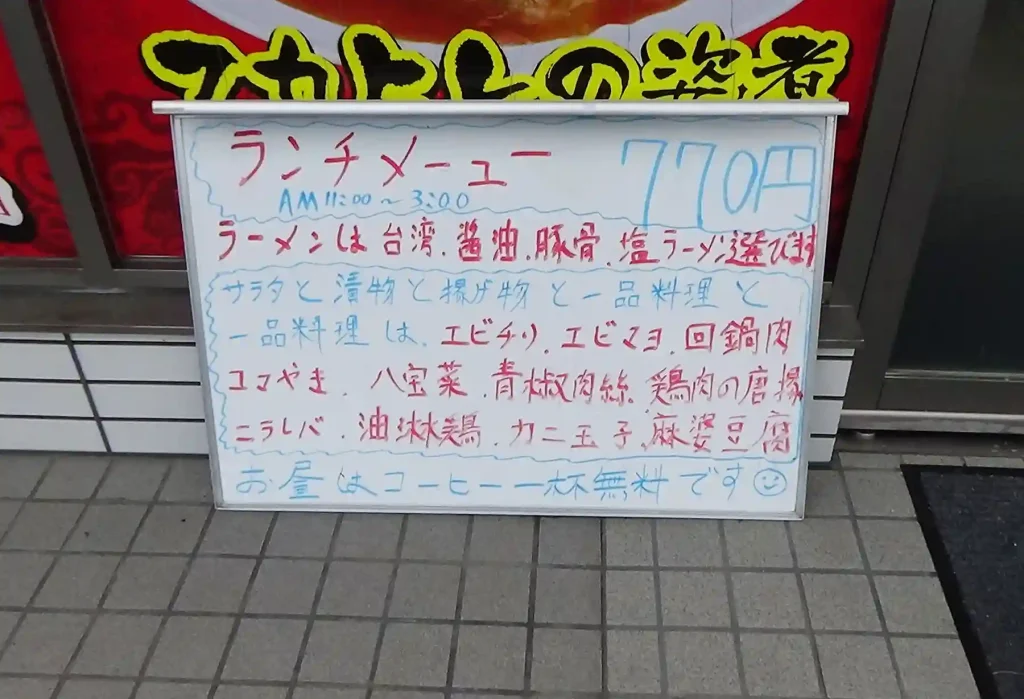 フカヒレの姿煮
ランチメニュー 770円
AM 11:00～3:00
ラーメンは台湾.醤油.豚骨.塩ラーメン選びます
サラダと漬物と揚げ物と一品料理と
一品料理は.エビチリ.エビマヨ.回鍋肉
コマやき.八宝菜.青椒肉絲.鶏肉の唐揚
ニラレバ.油淋鶏.カニ玉子.麻婆豆腐
お昼はコーヒー一杯無料です